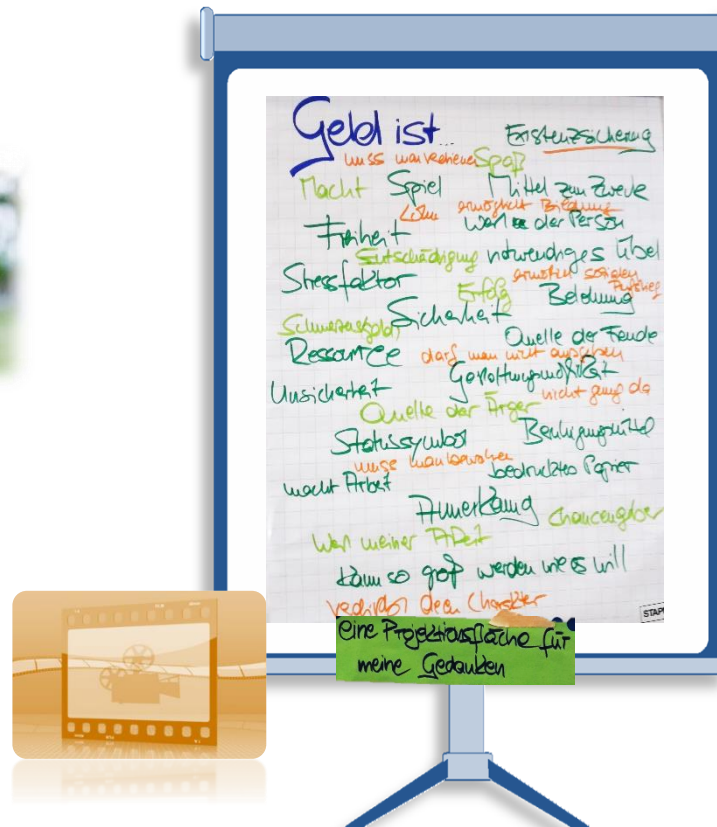 Geld ist...
Existenzsicherung
muss man verdienen Spaß
Macht Spiel Mittel zum Zweck
Lohn ermöglicht Bildung
Freiheit Wert der Person
Entschädigung notwendiges Übel
Stressfaktor ermöglicht sozialen Aufstieg
Erfolg Belohnung
Schmerzensgeld Sicherheit
Quelle der Freude
Ressource darf man nicht ausgeben
Gestaltungsmöglichkeit
Unsicherheit nicht genug da
Quelle der Ärger
Statussymbol Beruhigungsmittel
muss man bewahren bedrucktes Papier
macht Arbeit
Anerkennung Chancengeber
Wert meiner Arbeit
Kann so groß werden wie es will
verdirbt den Charakter
STAP
eine Projektionsfläche für
meine Gedanken